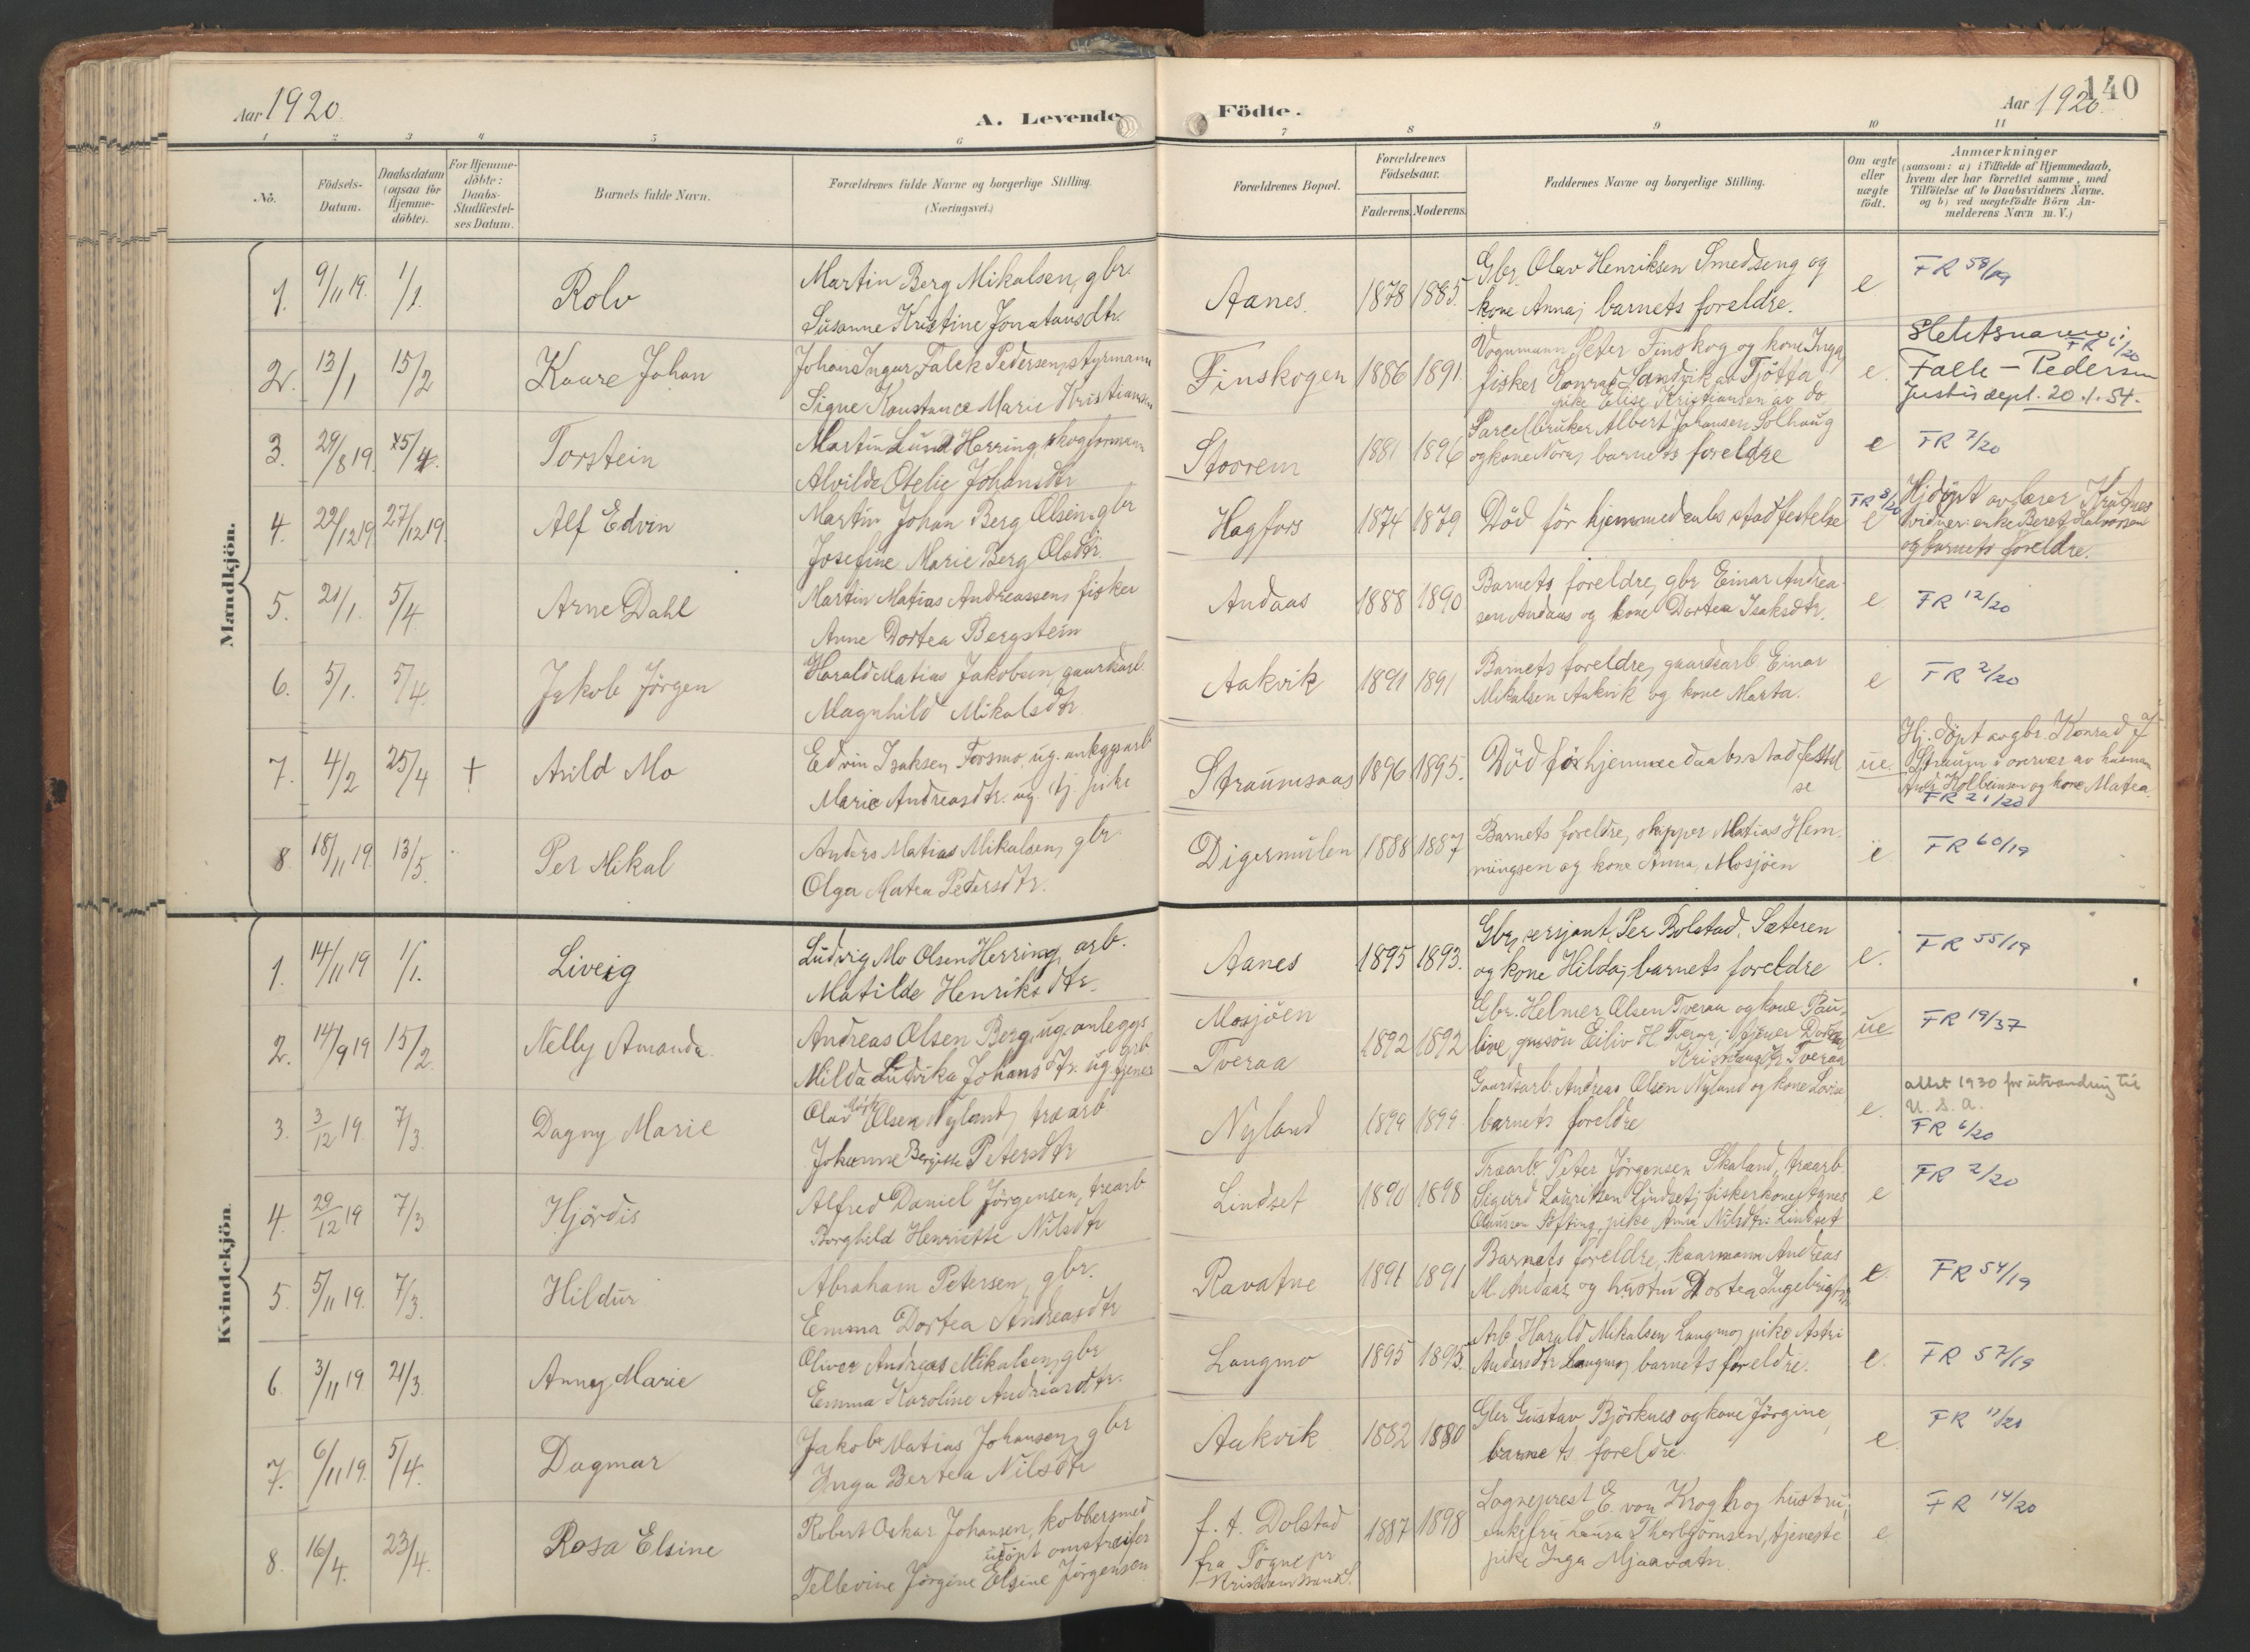 Aar 1920.
A. Levende
Födte.
Aar 1920.
140
1 2 3 4 5 6 7 8 9 10 11
No.
Födsels-Datum.
Daabsdatum (ogsaa for Hjemme-döbte).
For Hjemme-döbte: Daabs-Stadfæstel-ses Datum.
Barnets fulde Navn.
Forældrenes fulde Navne og borgerlige Stilling.
(Næringsvei.)
Forældrenes Bopæl.
Forældrenes Födselsaar.
Faderens. Moderens.
Faddernes Navne og borgerlige Stilling.
Om ægte eller uægte födt.
Anmærkninger
(saasom: a) i Tilfælde af Hjemmedaab,
hvem der har forrettet samme, med
Tilföielse af to Daabsvidners Navne,
og b) ved uægtefödte Börn An-
melderens Navn m. V.)
Mandkjön.
1. 9/11 19. 1/1. Rolv
Martin Berg Mikalsen, gbr.
Susanne Kristine Jonatansdtr.
Aanes. 1878 1885.
Gbr. Olav Henriksen Smedseng og
kone Anna; barnets foreldre.
e
FR 58/19
2. 13/1 15/2 Kaare Johan
Johan Ingvar Falck Pedersen, styrmann
Signe Konstance Marie Kristiansen
Finskogen 1886 1891.
Vognmann Peter Finskog og kone Inga,
fisker Konrad Sandvik av Tjötta
pike Elise Kristiansen av do
e.
Slektsnavn:
FR 6/20
Falck-Pedersen
Justisdept. 20.1.54.
3. 29/8 19. 25/4. Torstein
Martin Lund Herring, skogformann
Alvilde Otelie Johansdtr
Stoorem 1881 1896
Parcelbruker Albert Johansen Solhaug
og kone Nora, barnets foreldre
e
FR 7/20
4. 22/12 19 27/12 19. Alf Edvin
Martin Johan Berg Olsen, gbr
Josefine Marie Berg Olsdtr.
Hagfors 1874 1879
Död för hjemmedaabs stadfestelse
FR 8/20
e
Hjdöpt av lærer
vidner: enke Beret Halvorsen
og barnets foreldre.
5. 21/1. 5/4. Arne Dahl
Martin Matias Andreassen, fisker
Anne Dortea Bergstein
Andaas 1888 1890
Barnets foreldre, gbr Einar Andrea-
sen Andaas og kone Dortea Isaksdtr.
e
FR 12/20
6. 5/1. 5/4. Jakob Jörgen
Harald Matias Jakobsen, gaardarb.
Magnhild Mikalsdtr
Aakvik 1891 1891
Barnets foreldre, gaardsarb. Einar
Mikalsen Aakvik og kone Marta.
e
FR 2/20
7. 4/2 25/4 † Arild Mo
Edvin Isaksen Forsmo, ug. anleggsarb
Marie Andreasdtr. ug. tj. pike
Straumsaas 1896 1895.
Död för hjemmedaabsstadfestel
se
ue.
Hj. döpt av gbr. Konrad J
Straum i overvær av husmann
Andr. Kolbeinsen og kone Matea.
FR 21/20
8. 18/11 19. 13/5. Per Mikal
Anders Matias Mikalsen, gbr
Olga Matea Pedersdtr.
Digermulen 1888 1887
Barnets foreldre, skipper Matias Hem-
mingsen og kone Anna, Mosjöen
e.
FR 60/19
Kvindekjön.
1. 14/11 19 1/1. Liveig
Ludvig Mo Olsen Herring, arb.
Matilde Henriksdtr.
Aanes 1895 1893.
Gbr, sersjant, Per Bolstad, Sæteren
og kone Hilda, barnets foreldre
e.
FR 55/19
2. 14/9 19 15/2. Nelly Amanda.
Andreas Olsen Berg, ug. anleggs
arb
Milda Ludvika Johansdtr. ug. tjener
Mosjöen
Tveraa 1892 1892
Gbr. Helmer Olsen Tveraa og kone Pau-
line, gmsön Eiliv H. Tveraa; tjener Dortea
Kristiansdtr Tveraa
ue
FR 19/37
3. 3/12 19. 7/3. Dagny Marie
Olav Olsen Nyland, træarb.
Johanne Bergitte Petersdtr
Nyland 1899 1899.
Gaardsarb. Andreas Olsen Nyland og kone Lovise,
barnets foreldre
e.
attst 1930 for utvandring til
U.S.A.
FR 6/20
4. 29/12 19 7/3 Hjördis
Alfred Daniel Jörgensen, trearb
Borghild Henriette Nilsdtr
Lindset 1890 1898
Træarb. Peter Jörgensen Skaland, træarb
Sigurd Lauritsen Lindset; fiskerkone Agnes
Söfting, pike Anna Nilsdtr. Lindset
e
FR 2/20
5. 5/11 19. 7/3. Hildur
Abraham Petersen, gbr.
Emma Dortea Andreasdtr
Ravatne 1891 1891
Barnets foreldre, kaarmann Andreas
M. Andaas og hustru Dortea Ingebrigtsdtr
e.
FR 54/19
6. 3/11 19 21/3. Anny Marie
Oliver Andreas Mikalsen, gbr
Emma Karoline Andreasdtr.
Langmo 1895 1895.
Arb. Harald Mikalsen Langmo, pike Astri
Andersdtr Langmo, barnets foreldre.
e.
FR 57/19
7. 6/11 19. 5/4. Dagmar
Jakob Matias Johansen, gbr
Inga Bertea Nilsdtr
Aakvik 1882 1880
Gbr Gustav Björknes og kone Jörgine,
barnets foreldre.
e.
FR 11/20
8. 16/4. 23/4. Rosa Elsine
Robert Oskar Johansen, kobbersmed
udöpt omstreifer
Tellevine Jörgine Elsine Jörgensen
f. t. Dolstad
fra Sogne pr
Kristiansand S.
1887 1898
Sogneprest E. von Krogh og hustru;
enkefru Laura Thorbjörnsen, tjeneste
pike Inga Mjaavatn
e
FR 14/20